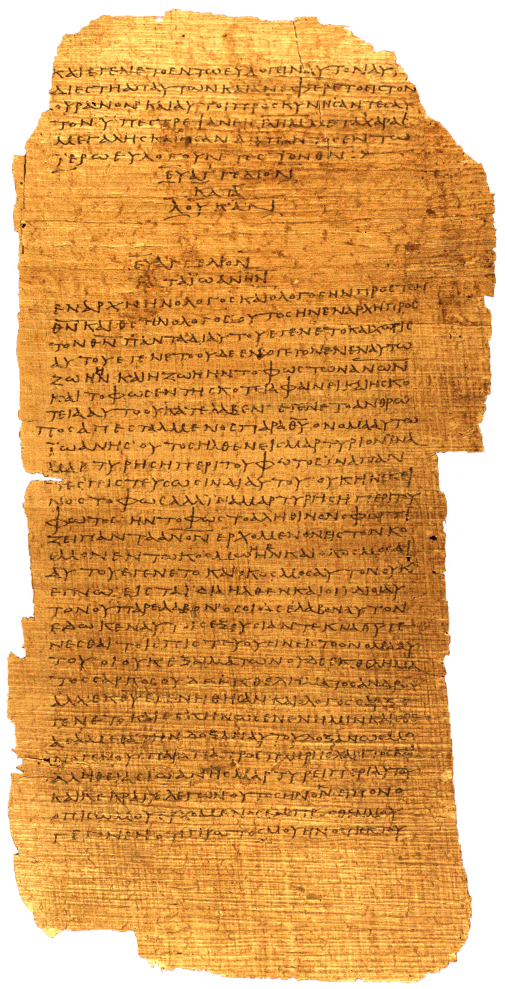 ΚΑΙΕΓΕΝΕΤΟΕΝΤΩΕΥΛΟΓΕΙΝΑΥΤΟΝΑΥΤ
ΔΙΕΣΤΗΑΠΑΥΤΩΝΚΑΙΑΝΕΦΕΡΕΤΟΕΙΣΤΟΝ
ΟΥΡΑΝΟΝΚΑΙΑΥΤΟΙΠΡΟΣΚΥΝΗΣΑΝΤΕΣΑΥ
ΤΟΝΥΠΕΣΤΡΕΨΑΝΕΙΣΙΕΛΗΜΜΕΤΑΧΑΡΑΣ
ΜΕΓΑΛΗΣΚΑΙΗΣΑΝΔΙΑΠΑΝΤΟΣΕΝΤΩ
ΙΕΡΩΕΥΛΟΓΟΥΝΤΕΣΤΟΝΘΝ
ΕΥΑΓΓΕΛΙΟΝ
ΚΑΤΑ
ΛΟΥΚΑΝ
ΕΥΑΓΓΕΛΙΟΝ
ΚΑΤΑΙΩΑΝΗΝ
ΕΝΑΡΧΗΗΝΟΛΟΓΟΣΚΑΙΟΛΟΓΟΣΗΝΠΡΟΣΤΟΝ
ΘΝΚΑΙΘΣΗΝΟΛΟΓΟΣΟΥΤΟΣΗΝΕΝΑΡΧΗΠΡΟΣ
ΤΟΝΘΝΠΑΝΤΑΔΙΑΥΤΟΥΕΓΕΝΕΤΟΚΑΙΧΩΡΙΣ
ΑΥΤΟΥΕΓΕΝΕΤΟΟΥΔΕΕΝΟΓΕΓΟΝΕΝΕΝΑΥΤΩ
ΖΩΗΗΝΚΑΙΗΖΩΗΗΝΤΟΦΩΣΤΩΝΑΝΩΝ
ΚΑΙΤΟΦΩΣΕΝΤΗΣΚΟΤΕΙΑΦΑΙΝΕΙΚΑΙΗΣΚΟ
ΤΕΙΑΑΥΤΟΟΥΚΑΤΕΛΑΒΕΝΕΓΕΝΕΤΟΑΝΘΡΩ
ΠΟΣΑΠΕΣΤΑΛΜΕΝΟΣΠΑΡΑΘΥΟΝΟΜΑΑΥΤΩ
ΙΩΑΝΗΣΟΥΤΟΣΗΛΘΕΝΕΙΣΜΑΡΤΥΡΙΟΝΙΝΑ
ΜΑΡΤΥΡΗΣΗΠΕΡΙΤΟΥΦΩΤΟΣΙΝΑΠΑΝ
ΤΕΣΠΙΣΤΕΥΣΩΣΙΝΔΙΑΥΤΟΥΟΥΚΗΝΕΚΕΙ
ΝΟΣΤΟΦΩΣΑΛΛΑΙΝΑΜΑΡΤΥΡΗΣΗΠΕΡΙΤΟΥ
ΦΩΤΟΣΗΝΤΟΦΩΣΤΟΑΛΗΘΙΝΟΝΟΦΩΤΙ
ΖΕΙΠΑΝΤΑΑΝΟΝΕΡΧΟΜΕΝΟΝΕΙΣΤΟΝΚΟ
ΣΜΟΝΕΝΤΩΚΟΣΜΩΗΝΚΑΙΟΚΟΣΜΟΣΔΙ
ΑΥΤΟΥΕΓΕΝΕΤΟΚΑΙΟΚΟΣΜΟΣΑΥΤΟΝΟΥΚ
ΕΓΝΩΕΙΣΤΑΙΔΙΑΗΛΘΕΝΚΑΙΟΙΙΔΙΟΙΑΥ
ΤΟΝΟΥΠΑΡΕΛΑΒΟΝΟΣΟΙΔΕΕΛΑΒΟΝΑΥΤΟΝ
ΕΔΩΚΕΝΑΥΤΟΙΣΕΞΟΥΣΙΑΝΤΕΚΝΑΘΥΓΕ
ΝΕΣΘΑΙΤΟΙΣΠΙΣΤΕΥΟΥΣΙΝΕΙΣΤΟΟΝΟΜΑΑΥ
ΤΟΥΟΙΟΥΚΕΞΑΙΜΑΤΩΝΟΥΔΕΕΚΘΕΛΗΜΑ
ΤΟΣΣΑΡΚΟΣΟΥΔΕΕΚΘΕΛΗΜΑΤΟΣΑΝΔΡΟΣ
ΑΛΛΕΚΘΥΕΓΕΝΗΘΗΣΑΝΚΑΙΟΛΟΓΟΣΣΑΡΞΕ
ΓΕΝΕΤΟΚΑΙΕΣΚΗΝΩΣΕΝΕΝΗΜΙΝΚΑΙΕΘΕ
ΑΣΑΜΕΘΑΤΗΝΔΟΞΑΝΑΥΤΟΥΔΟΞΑΝΩΣΜΟ
ΝΟΓΕΝΟΥΣΠΑΡΑΠΑΤΡΟΣΠΛΗΡΗΣΧΑΡΙΤΟΣΚΑΙ
ΑΛΗΘΕΙΑΣΙΩΑΝΗΣΜΑΡΤΥΡΕΙΠΕΡΙΑΥΤΟΥ
ΚΑΙΚΕΚΡΑΓΕΛΕΓΩΝΟΥΤΟΣΗΝΟΝΕΙΠΟΝΟ
ΟΠΙΣΩΜΟΥΕΡΧΟΜΕΝΟΣΕΜΠΡΟΣΘΕΝΜΟΥ
ΓΕΓΟΝΕΝΟΤΙΠΡΩΤΟΣΜΟΥΗΝΟΤΙΕΚΤΟΥ